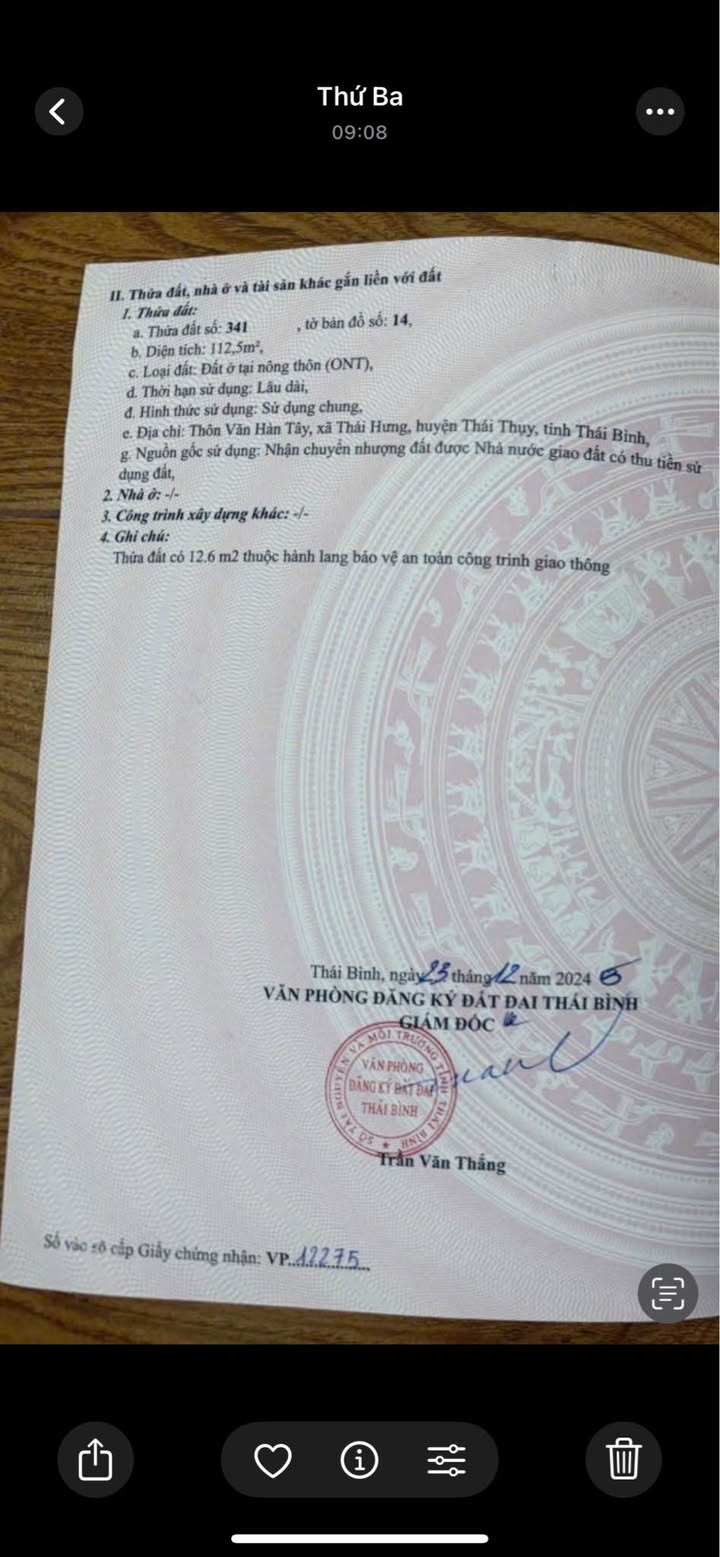 Thứ Ba
09:08
II. Thửa đất, nhà ở và tài sản khác gắn liền với đất
1. Thửa đất:
a. Thửa đất số: 341 , tờ bản đồ số: 14,
b. Diện tích: 112,5m²,
c. Loại đất: Đất ở tại nông thôn (ONT),
d. Thời hạn sử dụng: Lâu dài,
đ. Hình thức sử dụng: Sử dụng chung,
e. Địa chỉ: Thôn Văn Hàn Tây, xã Thái Hưng, huyện Thái Thụy, tỉnh Thái Bình,
g. Nguồn gốc sử dụng: Nhận chuyển nhượng đất được Nhà nước giao đất có thu tiền sử
dụng đất,
2. Nhà ở: -/-
3. Công trình xây dựng khác: -/-
4. Ghi chú:
Thửa đất có 12.6 m2 thuộc hành lang bảo vệ an toàn công trình giao thông
Thái Bình, ngày 23 tháng 12 năm 2024
VĂN PHÒNG ĐĂNG KÝ ĐẤT ĐAI THÁI BÌNH
GIÁM ĐỐC
SỞ TÀI NGUYÊN VÀ MÔI TRƯỜNG TỈNH THÁI BÌNH
VĂN PHÒNG
ĐĂNG KÝ ĐẤT ĐAI
THÁI BÌNH
Trần Văn Thắng
Số vào sổ cấp Giấy chứng nhận: VP...12275...